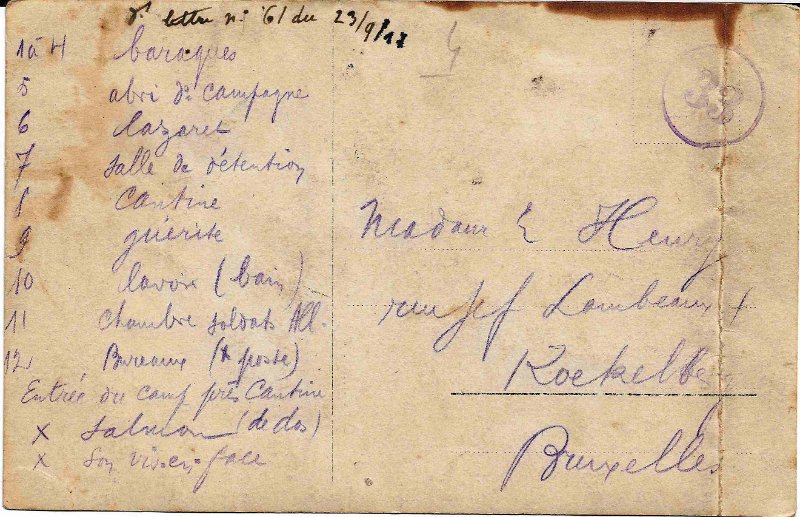 lettre n° 61 du 23/9/17
33
1 à 4 baraques
5 abri de campagne
6 lazaret
7 salle de détention
8 cantine
9 guérite
10 lavoir (bain)
11 chambre soldats All.
12 Bureaux (+ poste)
Entrée du camp près Cantine
x Salmon (de dos)
x son vis-en-face
Madame E Henry
rue Jef Lambeaux
Koekelberg
Bruxelles